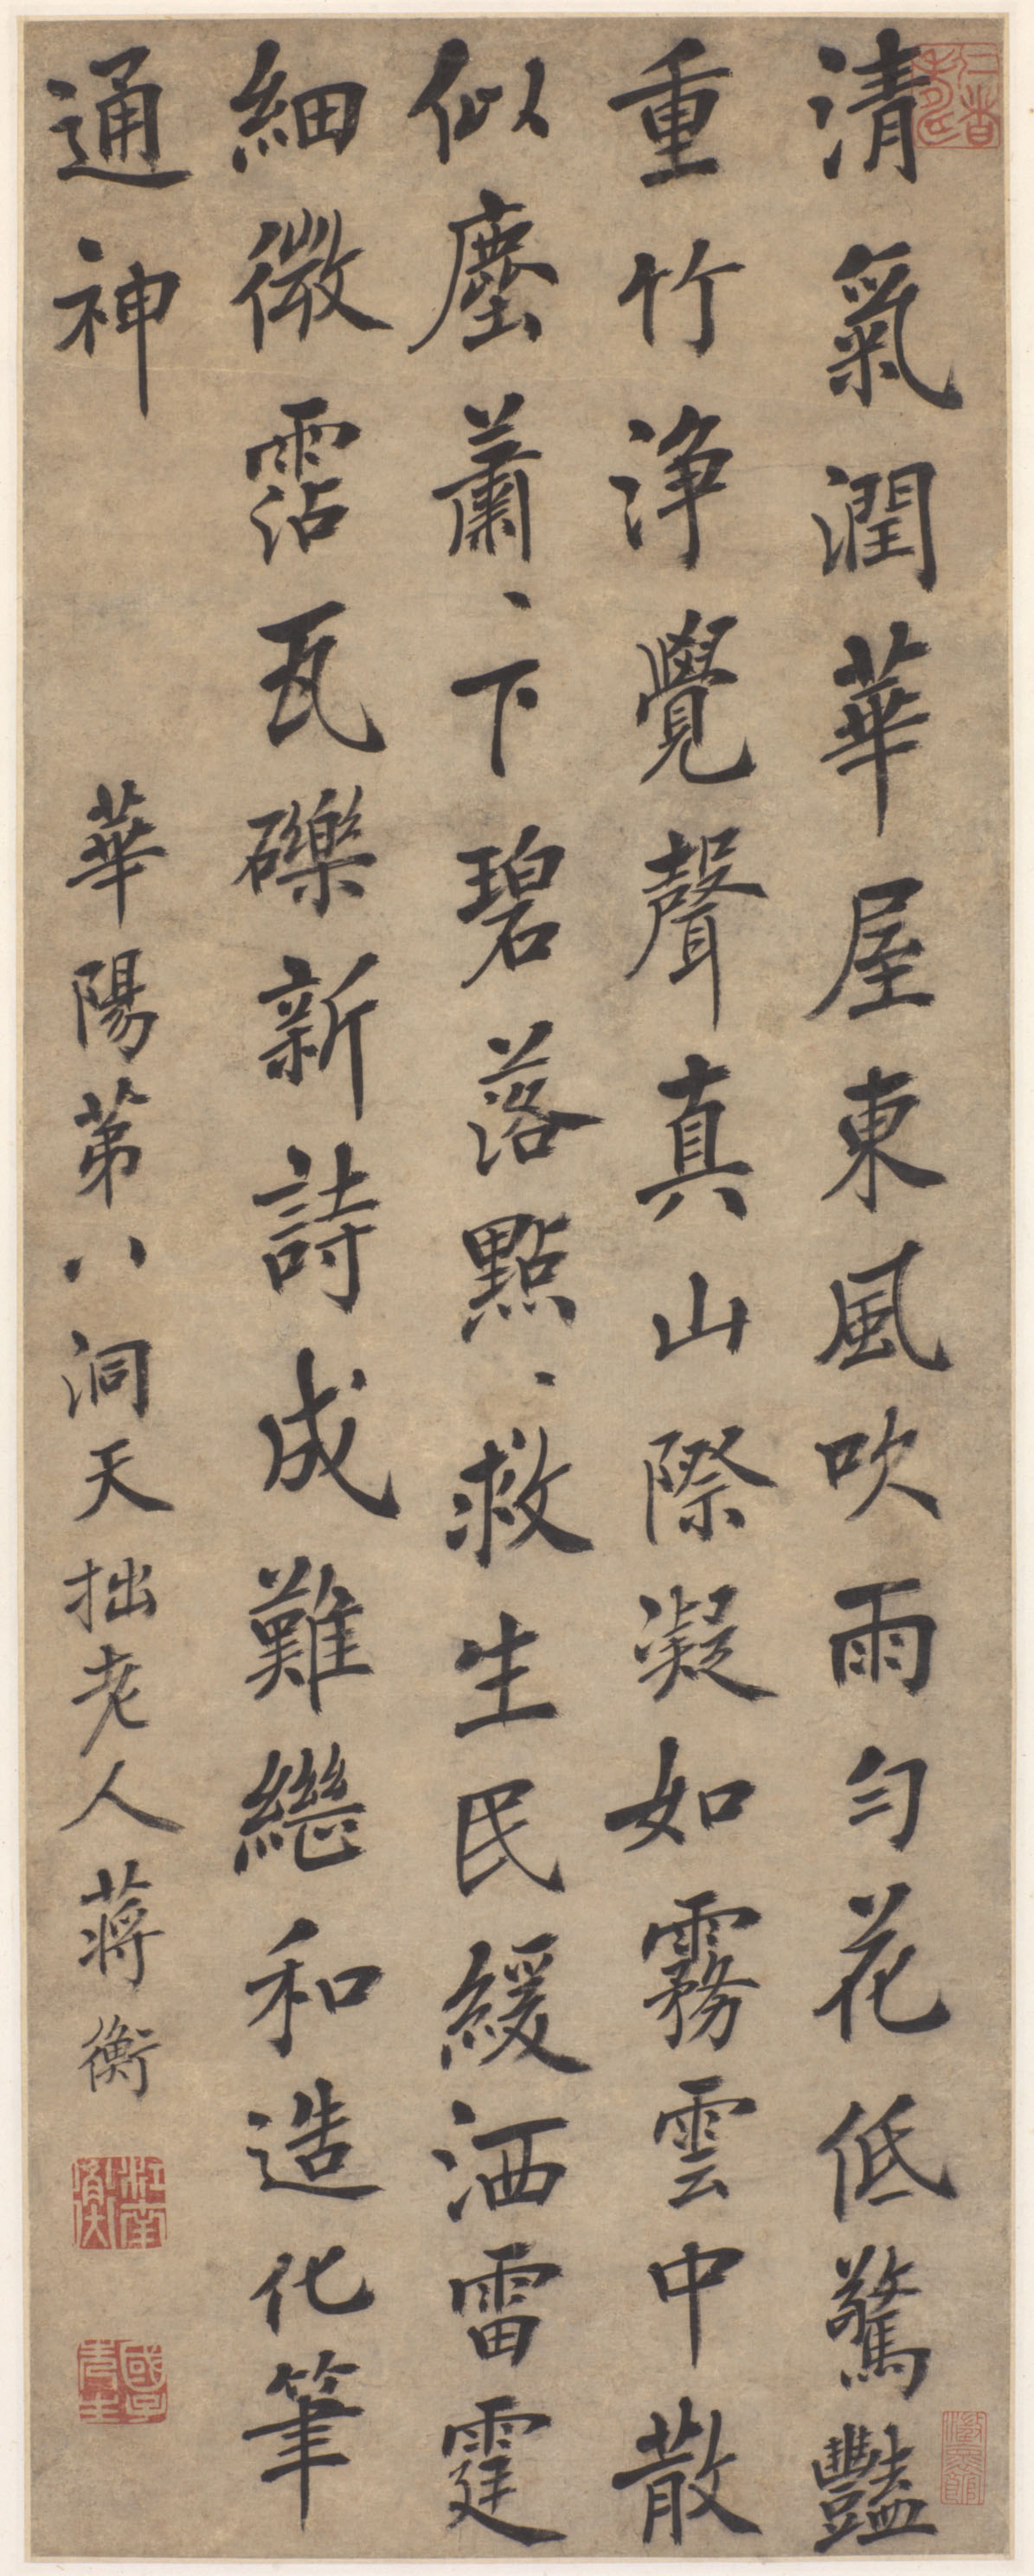 清氣潤華屋東風吹雨勻花低驚豔
重竹淨覺聲真山際凝如霧雲中散
似塵蕭、下碧落點、救生民緩洒雷霆
細微霑瓦礫新詩成難繼和造化筆
通神
華陽第八洞天拙老人蔣衡